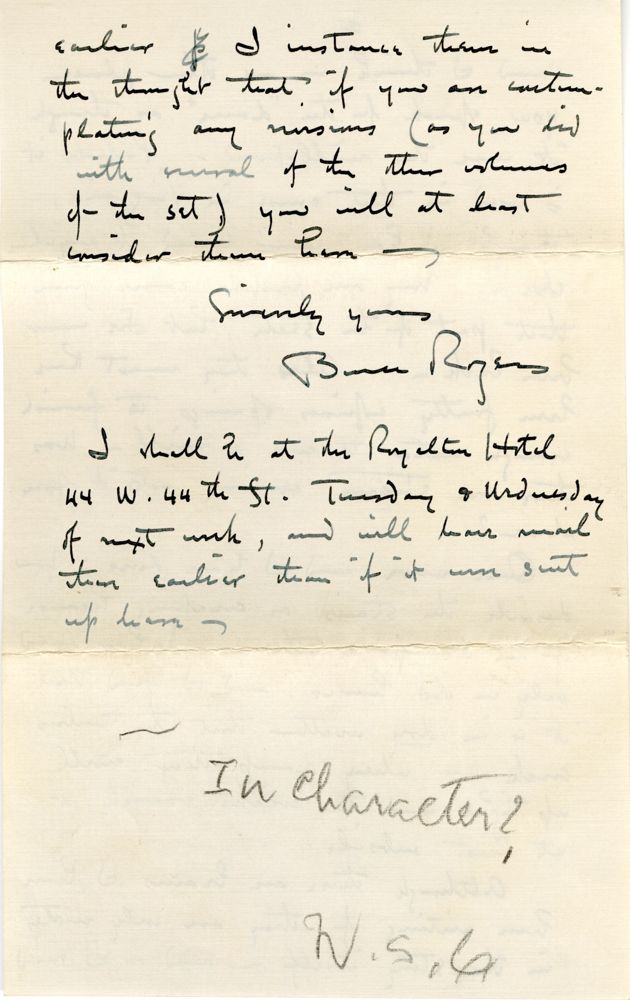 earlier I instance them in
the thought that, if you are contem-
plating any revisions (as you did
with several of the other volumes
of the set) you will at least
consider them here —
Sincerely yours
Bruce Rogers
I shall be at the Royalton Hotel
44 W. 44th St. Tuesday & Wednesday
of next week, and will have mail
there earlier than if it were sent
up here —
~ In character?
W.S.G